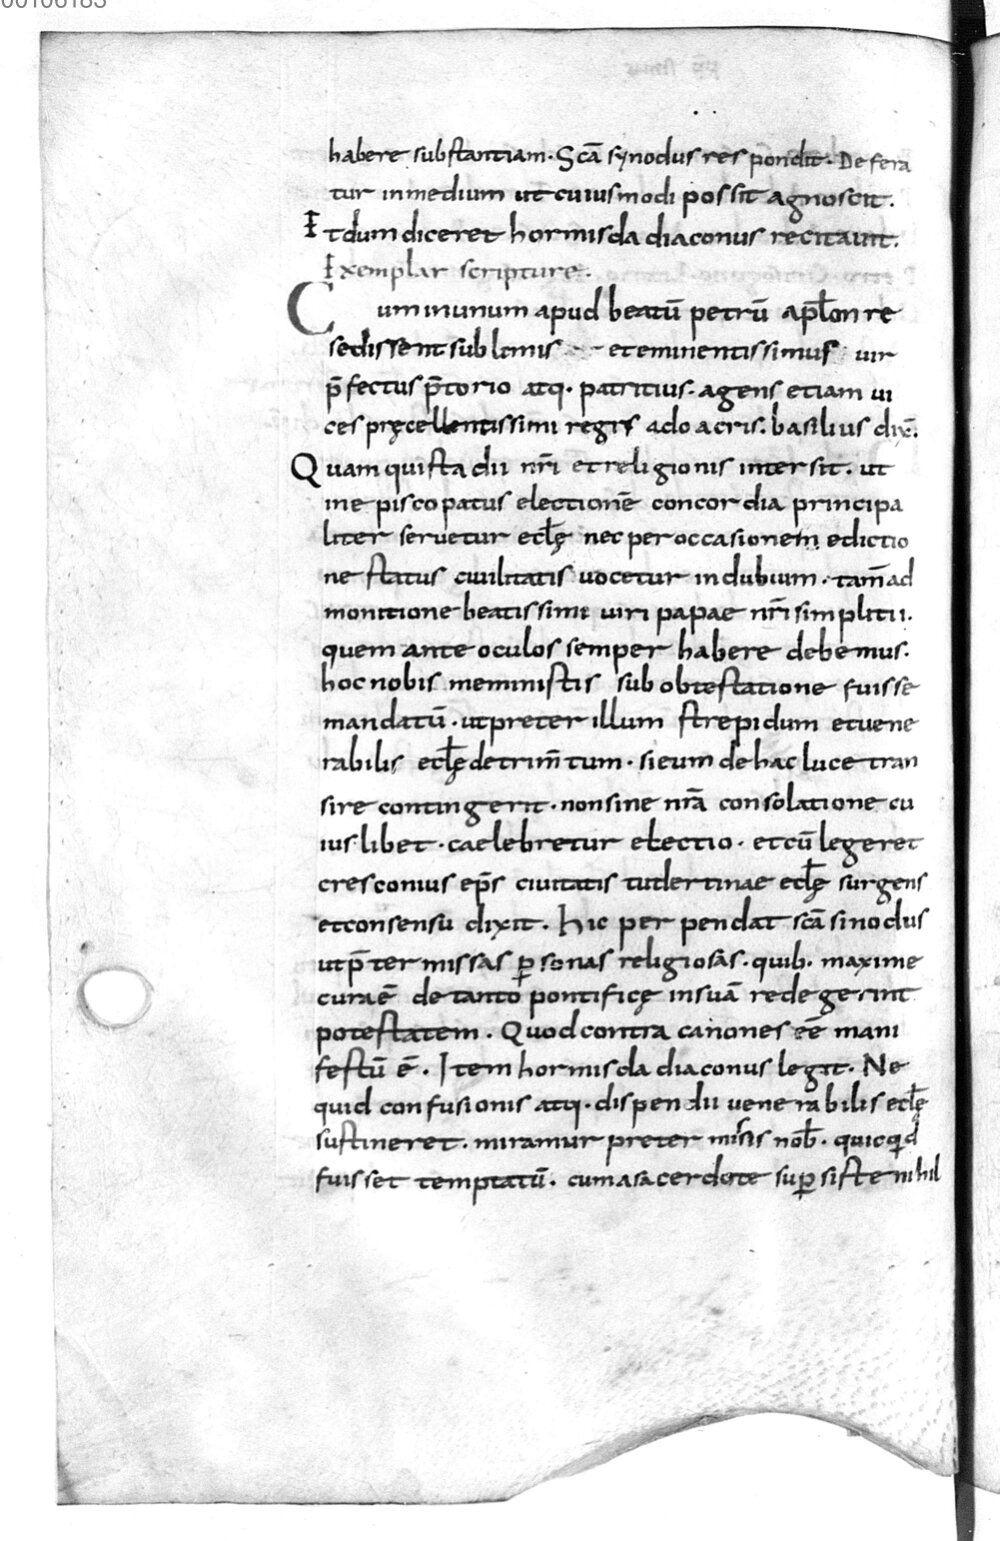 00106183
habere substantiam. Scā synodus respondit. Defera
tur inmedium ut cuiusmodi possit agnoscit.
Et dum diceret hormisda diaconus recitauit.
Exemplar scripture.
Cum inunum apud beatū petrū aplōn re
sedissent sublimis et eminentissimus uir
p̄fectus p̄torio atq. patritius. agens etiam ui
ces pręcellentissimi regis adoacris. basilius dix̄.
Quamquista dii nr̄i et religionis intersit. ut
inepiscopatus electionē concordia principa
liter seruetur eclę nec peroccasionem edictio
ne status ciuilitatis uocetur indubium. tam̄ ad
monitione beatissimi uiri papae nr̄i simplitii.
quem ante oculos semper habere debemus.
hoc nobis meministis sub obtestatione fuisse
mandatū. ut preter illum strepidum et uene
rabilis eclę detrim̄tum. si eum de hac luce tran
sire contingerit. non sine nr̄a consolatione cu
ius libet. caelebretur electio. et cū legeret
cresconius ep̄s ciuitatis tudertinae eclę surgens
et consensu dixit. Hic perpendat scā sinodus
ut p̄termissas p̱sonas religiosas. quib. maxime
cura ē de tanto pontificę insuā redegerint
potestatem. Quod contra canones eē mani
festū ē. Item hormisda diaconus legit. Ne
quid confusionis atq. dispendii uenerabilis eclę
sustineret. miramur preter misis nob̄. quicqid
fuisset temptatū. cum a sacerdote sup̱siste nihil